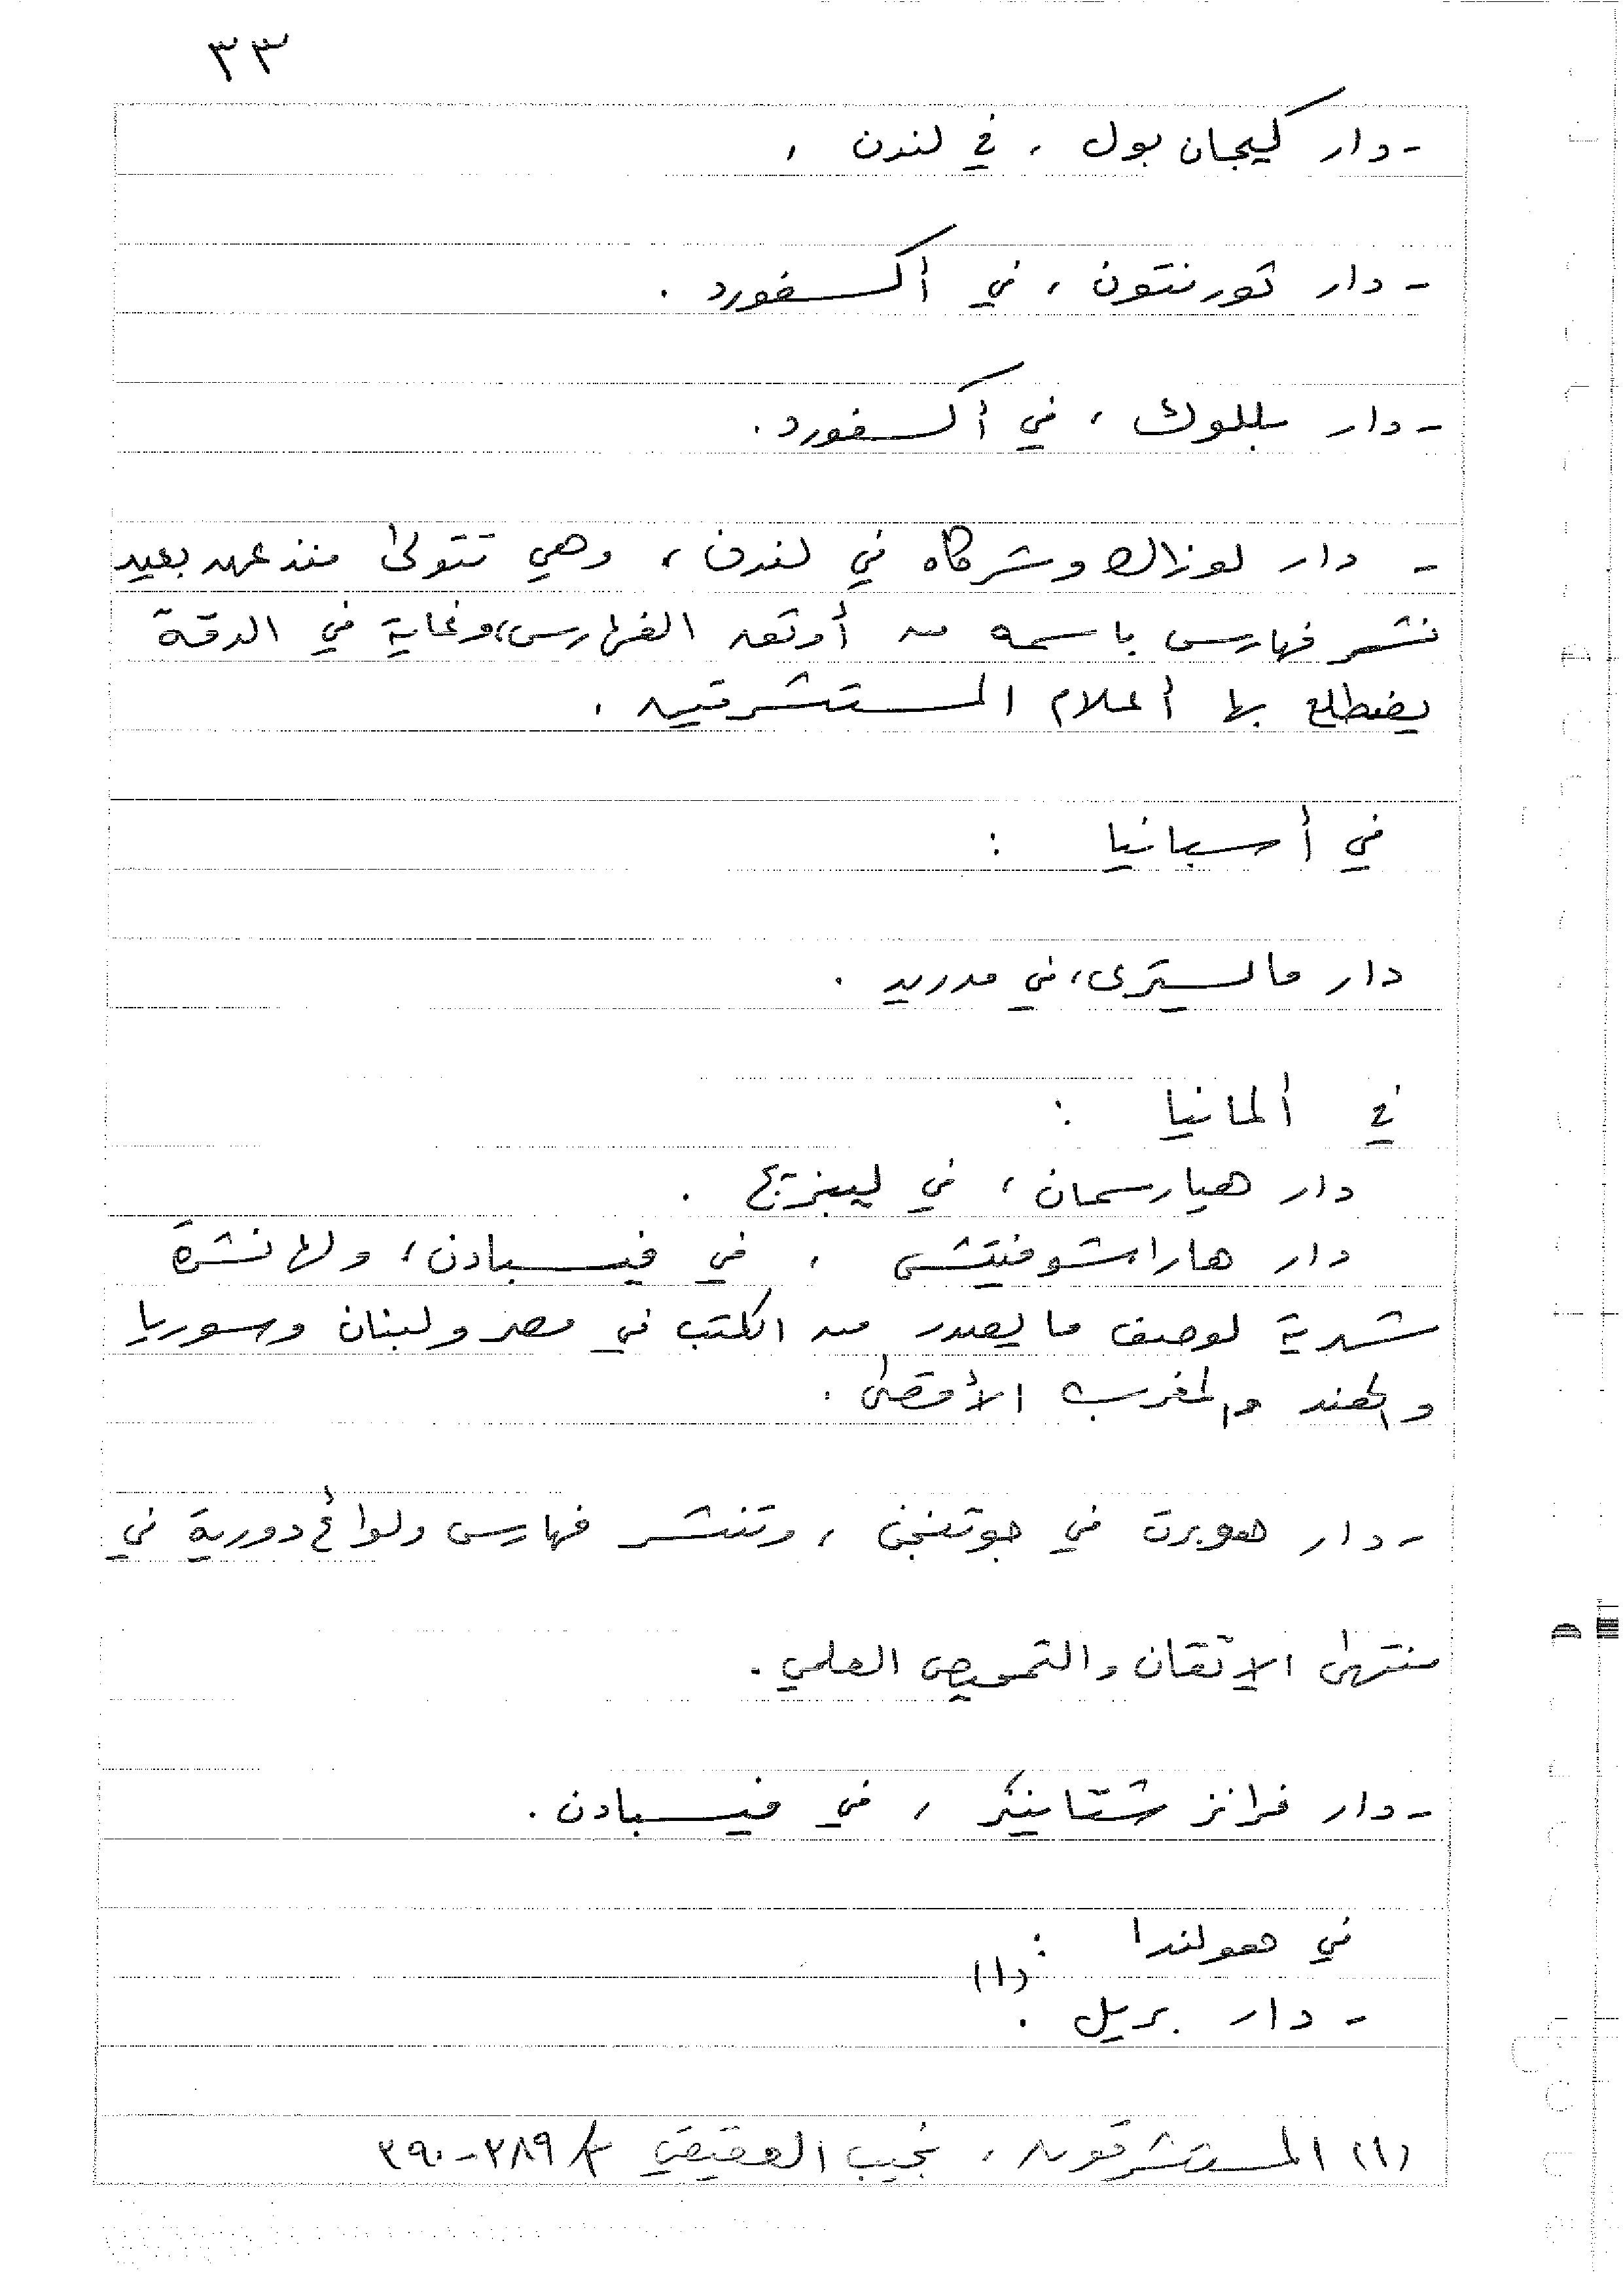 ٣٣
- دار كيجان بول ، في لندن .
- دار تورنتون ، في أكسفورد .
- دار بللوك ، في أكسفورد .
- دار لوزاك وشركاه في لندن ، وهي تتولى منذ عهد بعيد
نشر فهارس باسمه من أوثق الفهارس، وغاية في الدقة
يضطلع بها أعلام المستشرقين .
في أسبانيا :
دار مايستري، في مدريد .
في ألمانيا :
دار هيارسمان ، في ليبزيج .
دار هاراشوفيتش ، في فيسبادن ، ولها نشرة
شهرية لوصف ما يصدر من الكتب في مصر ولبنان وسوريا
والهند والمغرب الأقصى .
- دار هوبرت في جوتنجن ، وتنشر فهارس ولوائح دورية في
منتهى الإتقان والتمحيص العلمي .
- دار فرانز شتاينر ، في فيسبادن .
في هولندا :
- دار بريل . (١)
(١) المستشرقون ، نجيب العقيقي / ٣٨٩-٣٩٠